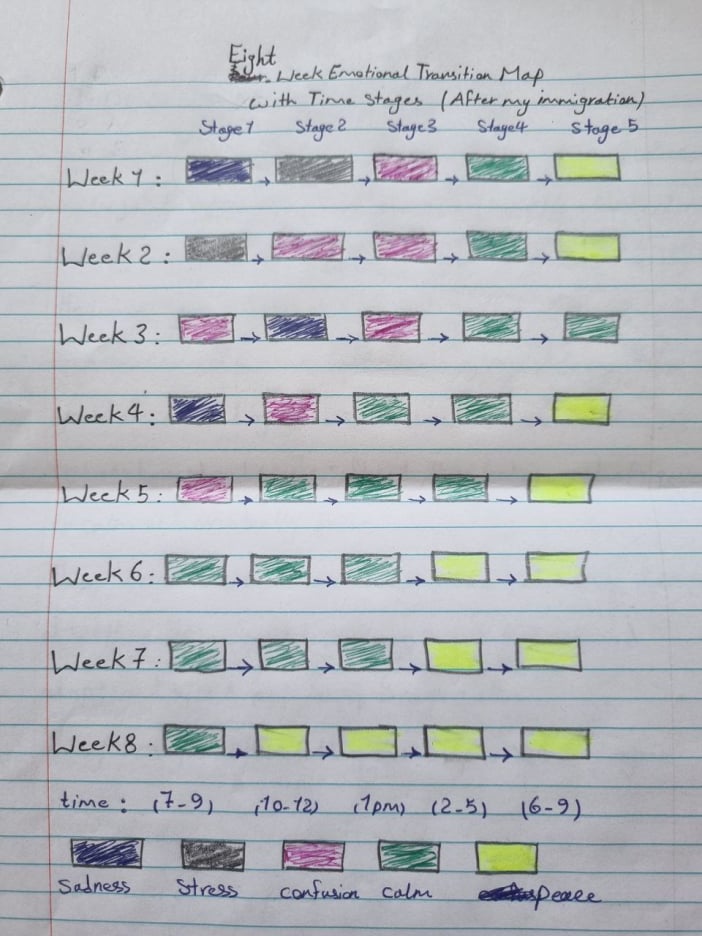 Eight
Week Emotional Transition Map
with Time stages (After my immigration)
Stage 1 Stage 2 Stage 3 Stage 4 Stage 5
Week 1 :
Week 2 :
Week 3 :
Week 4 :
Week 5 :
Week 6 :
Week 7 :
Week 8 :
time : (7-9) (10-12) (1pm) (2-5) (6-9)
Sadness Stress confusion calm peace